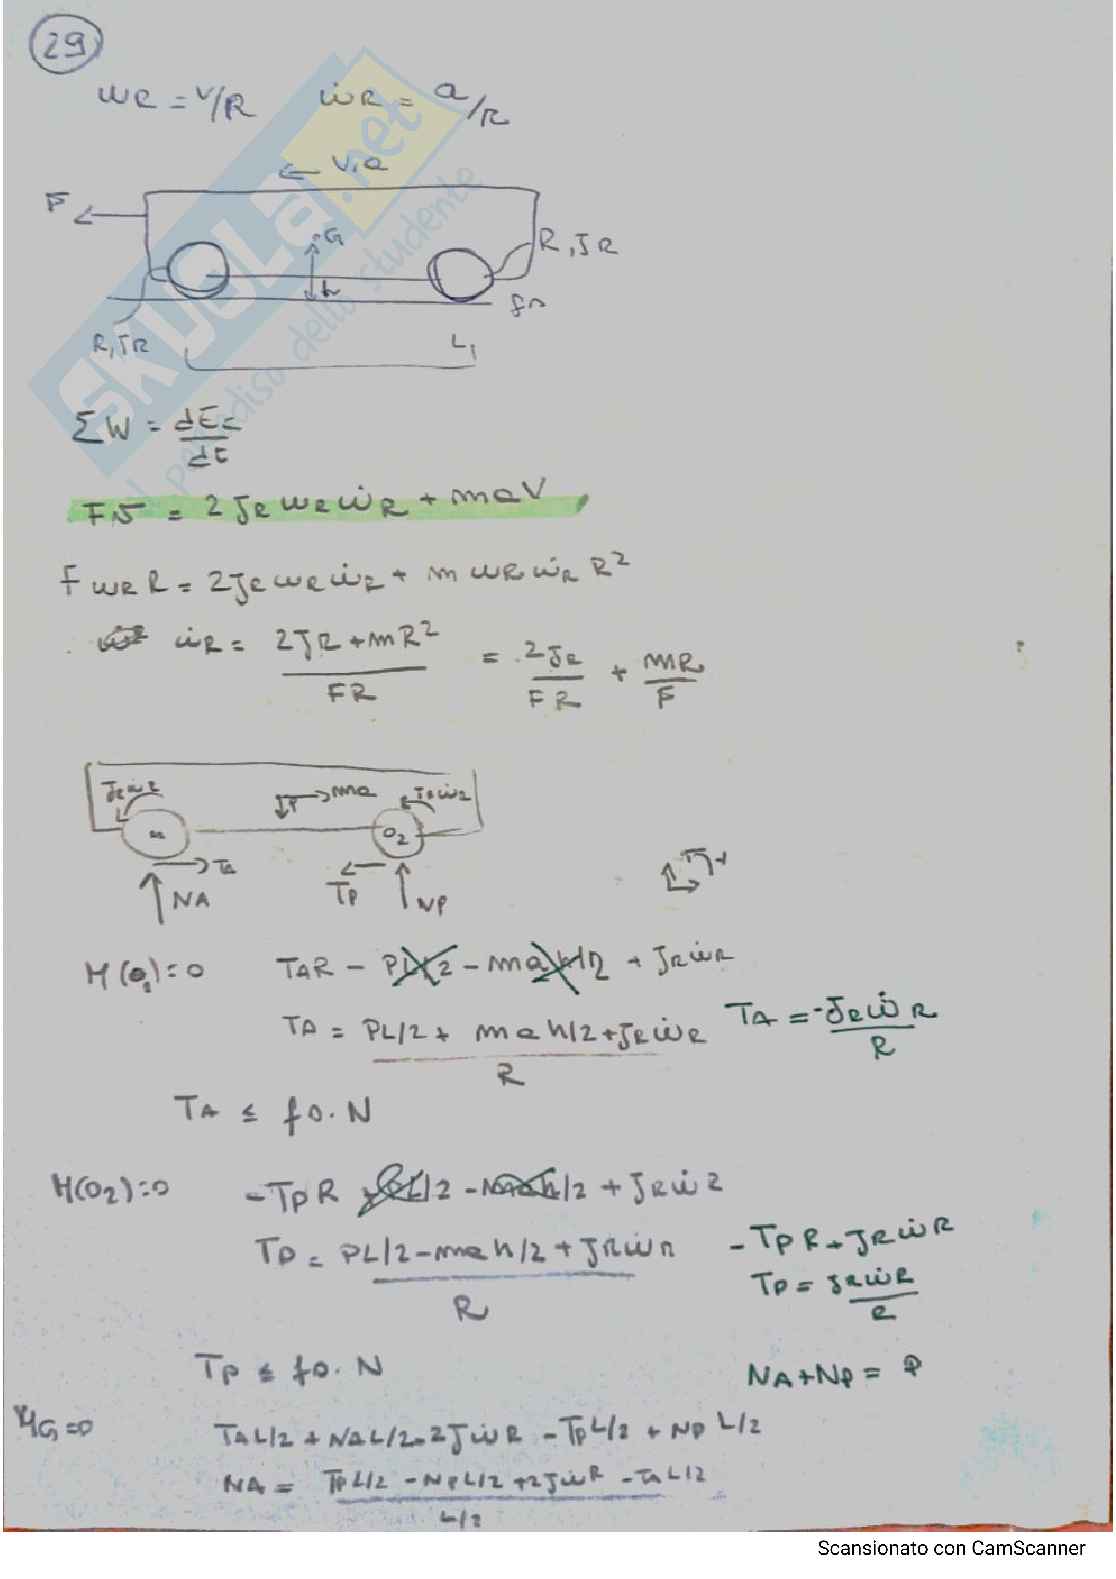 29
ωR = V/R    ω̇R = a/R
← V, a
F
G
h
R, JR
fo
R, JR
L,
ΣW = dEc/dt
Fv = 2 JR ωR ω̇R + maV
F ωR R = 2JR ωR ω̇R + m ωR ω̇R R²
ω̇R = 2JR + mR² / FR = 2JR / FR + mR / F
JRω̇R    ma    JRω̇R
P
O2
TA    TP
NA    NP
M(O1)=0    TAR - PL/2 - mah/2 + JRω̇R
TA = PL/2 + mah/2 + JRω̇R / R    TA = -JRω̇R / R
TA ≤ fo. N
M(O2)=0    -TPR + PL/2 - mah/2 + JRω̇R
TP = PL/2 - mah/2 + JRω̇R / R    -TPR + JRω̇R
TP = JRω̇R / R
TP ≤ fo. N    NA+NP = P
MG=0    TAL/2 + NAL/2 - 2Jω̇R - TPL/2 + NP L/2
NA = TPL/2 - NPL/2 + 2Jω̇R - TAL/2 / L/2
SKUOLA.net
il paradiso dello studente
Scansionato con CamScanner